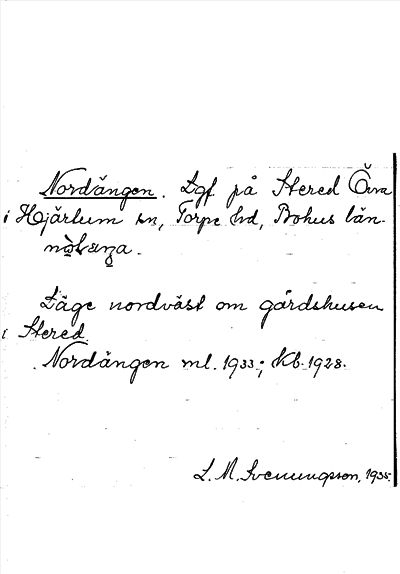 Nordängen. Lgf på Stered Övra
i Hjärtum sn, Torpe hd, Bohus län.
Läge nordväst om gårdshusen
i Stered.
Nordängen ml. 1933; kb. 1928.
L. M. Svenungsson, 1935.